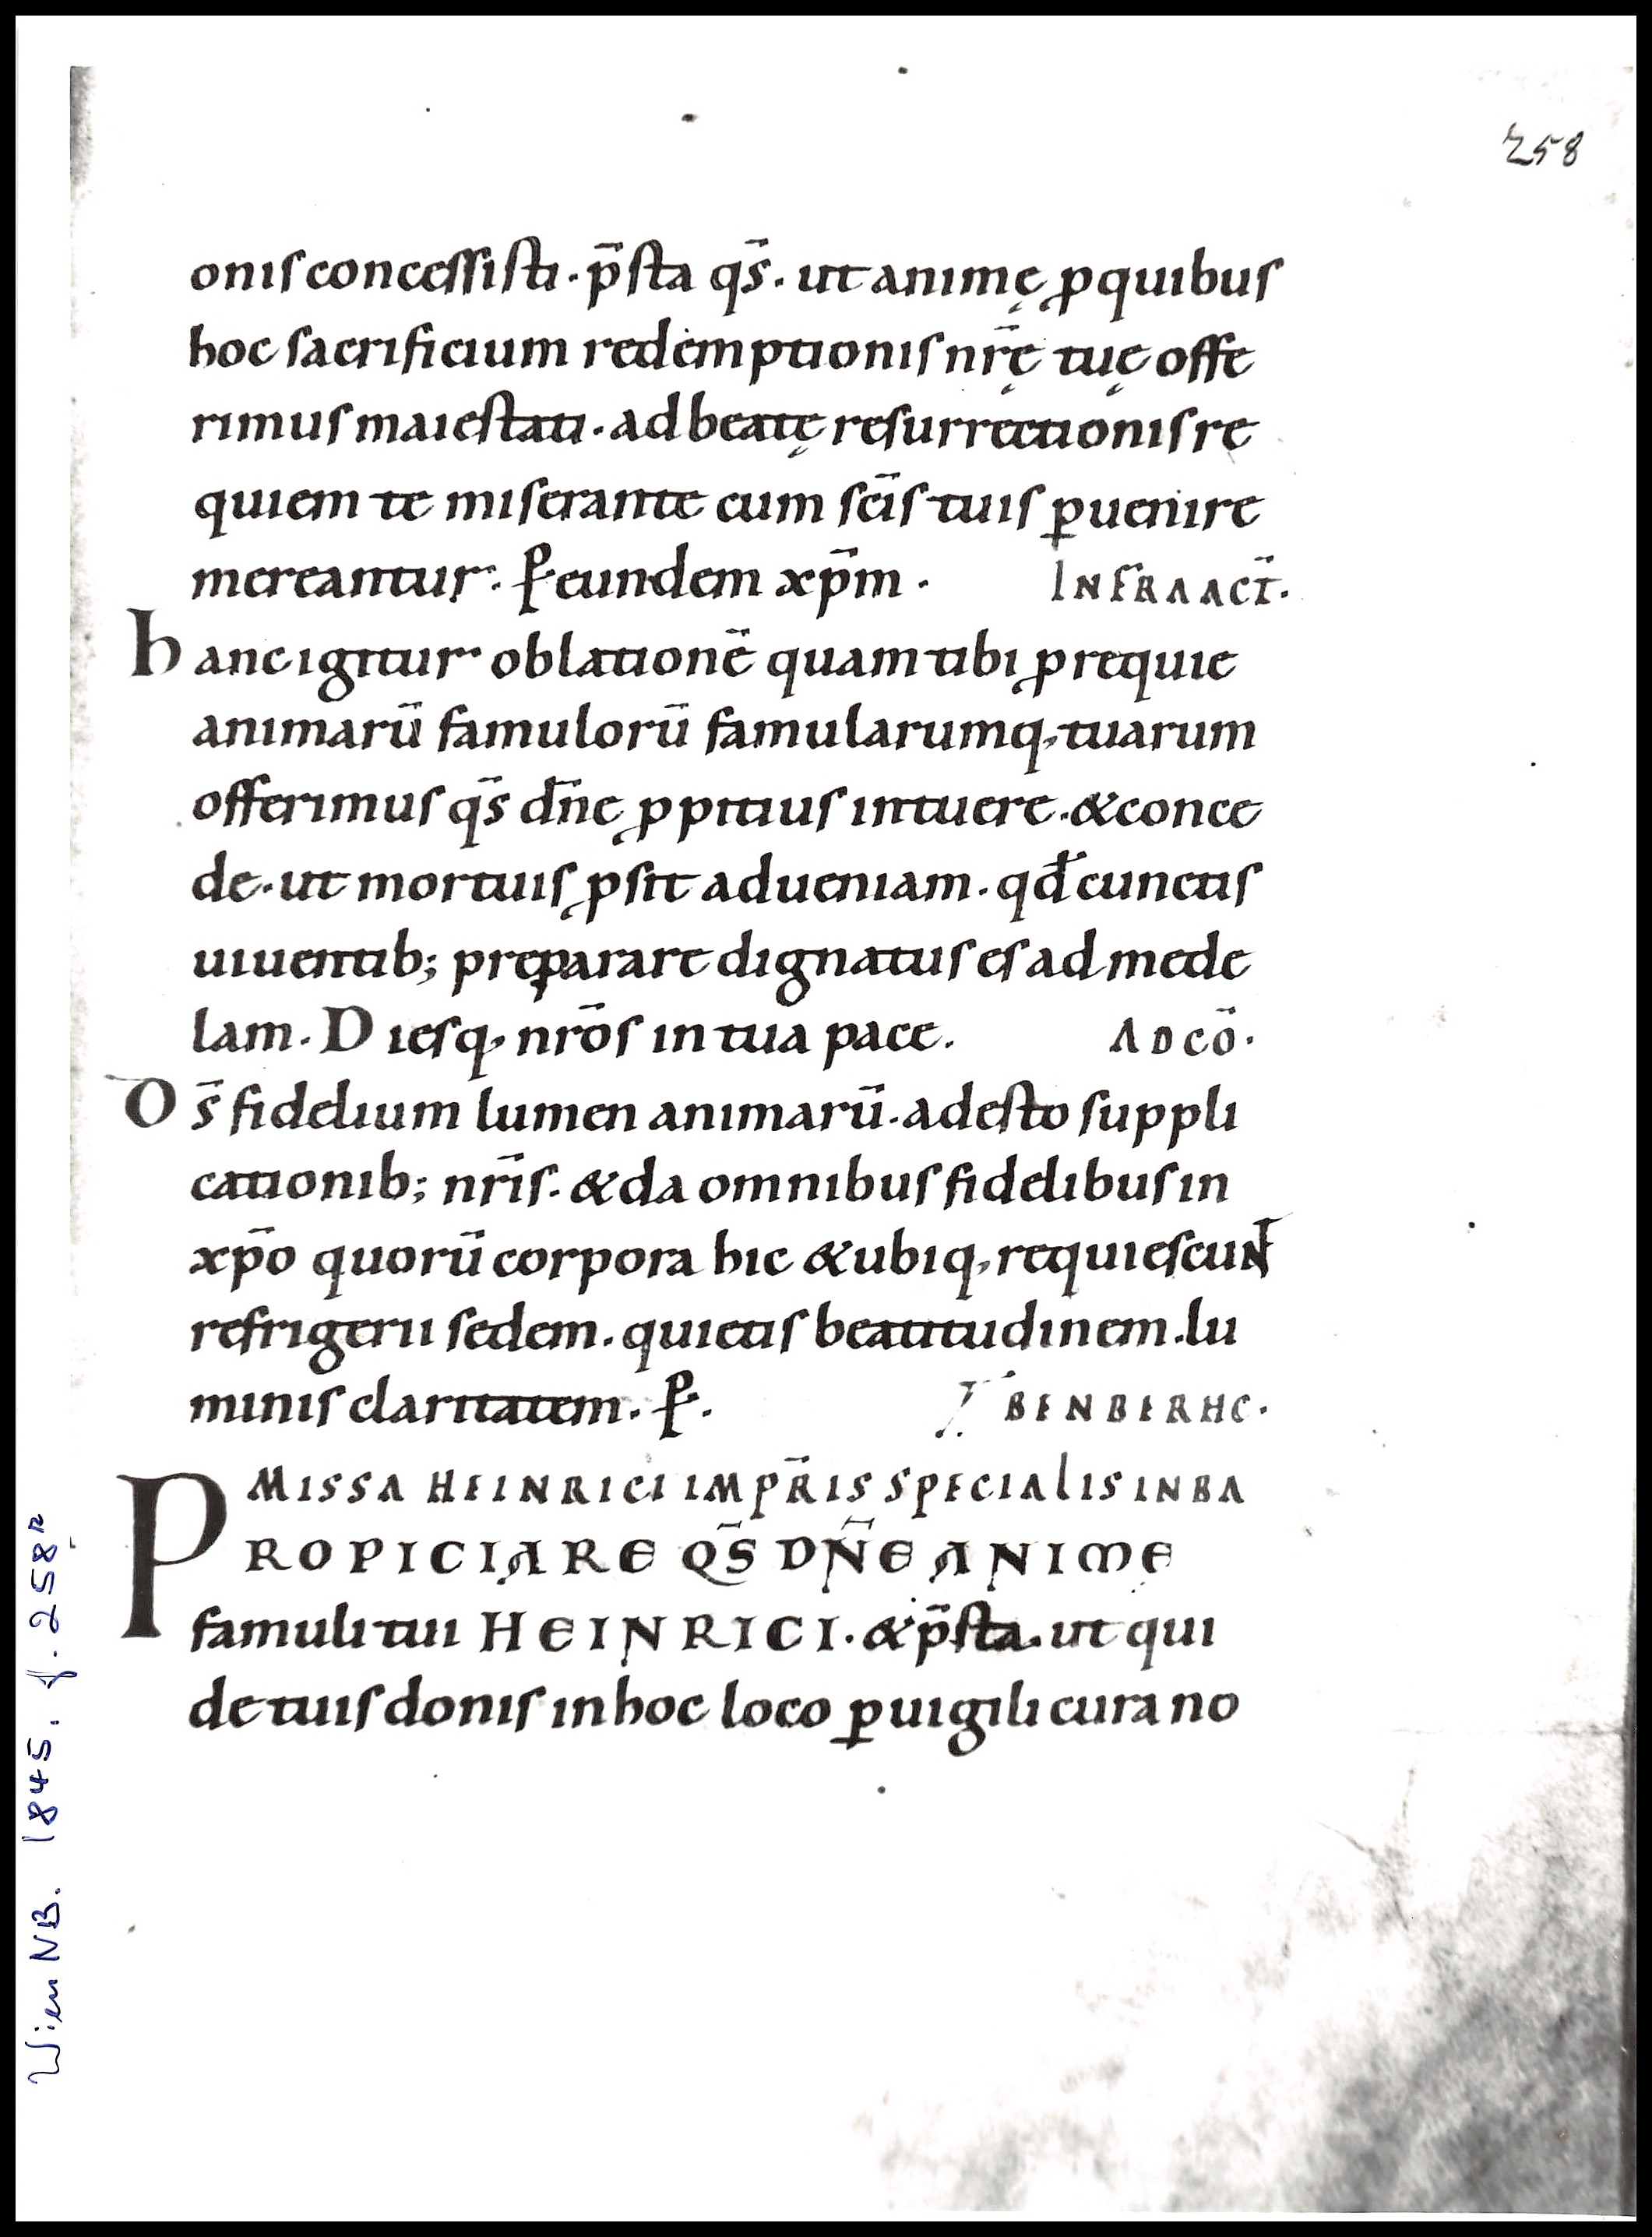 258
onis concessisti. p̄sta qs̄. ut animę ꝓ quibus
hoc sacrificium redemptionis nr̄ę tuę offe
rimus maiestati. ad beatę resurrectionis re
quiem te miserante cum sc̄is tuis ꝑuenire
mereantur. P̲ eundem xp̄m. INFRA ACT̄.
hanc igitur oblationē quam tibi ꝓ requie
animarū famulorū famularumq, tuarum
offerimus qs̄ dn̄e ꝓpitius intuere. & conce
de. ut mortuis ꝓsit ad ueniam. qd̄ cunctis
uiuentib; pręparare dignatus es ad mede
lam. Diesq, nr̄os in tua pace. AD CŌ.
Ds̄ fidelium lumen animarū. adesto suppli
cationib; nr̄is. & da omnibus fidelibus in
xp̄o quorū corpora hic & ubiq, requiescunt
refrigerii sedem. quietis beatitudinem. lu
minis claritatem. P̲. BENBERHC.
MISSA HEINRICI IMPR̄IS SPECIALIS IN BA
PROPICIARE QS̄ DN̄E ANIME
famuli tui HEINRICI. & p̄sta. ut qui
de tuis donis in hoc loco ꝑuigili cura no
Wien NB. 1845. f. 258r